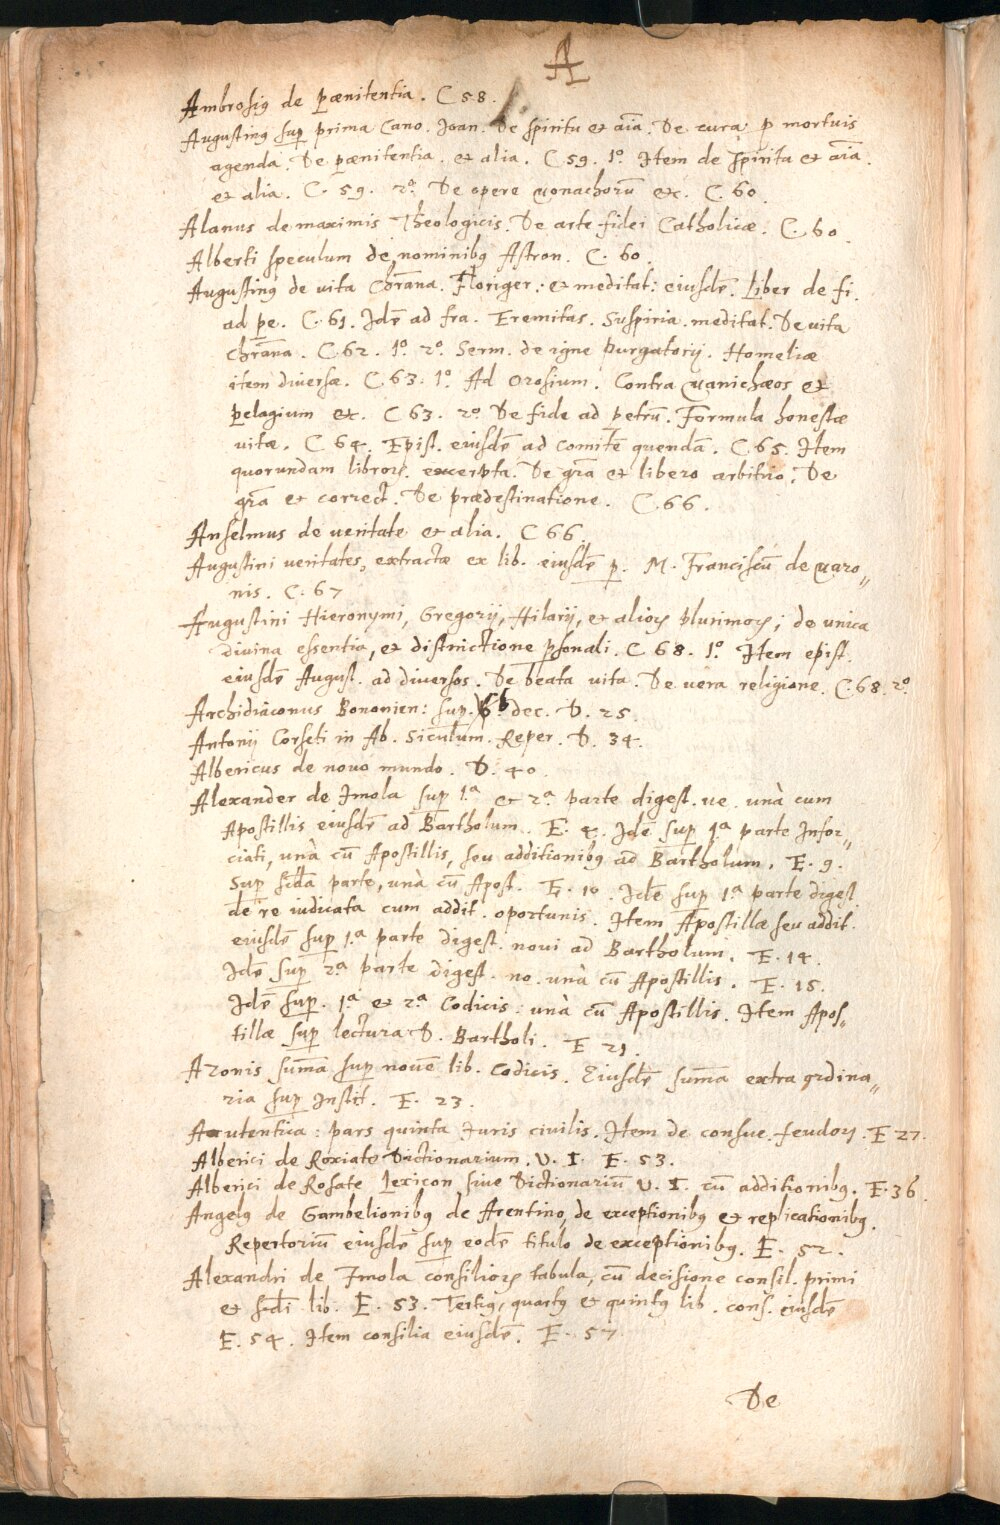 A
Ambrosiꝰ de pænitentia. C 58.
Augustinꝰ suꝑ prima Cano. Joan. De spiritu et aīa. De cura ꝓ mortuis
agenda. De pænitentia. et alia. C 59. 1º. Item de spiritu et aīa.
et alia. C. 59. 2º. De opere monachorū &c. C. 60.
Alanus de maximis Theologicis. De arte fidei Catholicæ. C. 60.
Alberti speculum de nominibꝰ Astron. C. 60.
Augustinꝰ de vita Chr̄ana. Floriger: et meditat: eiusdē. Liber de fi.
ad pe. C. 61. Idē ad fra. Eremitas. Suspiria. meditat. De vita
Chr̄ana. C 62. 1º. 2º. Serm. de igne purgatorij. Homeliæ
item diversæ. C 63. 1º. Ad Orosium. Contra Manichæos et
pelagium &c. C 63. 2º. De fide ad petrū. Formula honestæ
vitæ. C 64. Epist. eiusdē ad comitē quendā. C 65. Item
quorundam libroꝝ. excerpta. De gr̄a et libero arbitrio. De
gr̄a et correct. De prædestinatione. C. 66.
Anselmus de veritate et alia. C 66.
Augustini veritates, extractæ ex lib. eiusdē ꝑ. M. Franciscū de Maro„
nis. C. 67
Augustini Hieronymi, Gregorij, Hilarij, et alioꝝ plurimoꝝ; de unica
divina essentia, et distinctione ꝑsonali. C 68. 1º. Item epist.
eiusdē August. ad diversos. De beata vita. De vera religione. C. 68. 2º
Archidiaconus Bononien: sup. 6 dec. D. 25.
Antonij Corseti in Ab. Siculum. Reper. D. 34.
Albericus de novo mundo. D. 40.
Alexander de Imola suꝑ 1.ª et 2.ª parte digest. ve. unà cum
Apostillis eiusdē ad Bartholum. E. 4. Idē suꝑ 1.ª parte Infor„
ciati, unà cū Apostillis, seu additionibꝰ ad Bartholum. E. 9.
Suꝑ scd̄a parte, unà cū Apost. E. 10. Idē suꝑ 1.ª parte digest.
de re iudicata cum addit. oportunis. Item Apostillæ seu addit.
eiusdē suꝑ 1.ª parte digest. novi ad Bartholum. E. 14.
Idē suꝑ 2.ª parte digest. no. unà cū Apostillis. E. 15.
Idē suꝑ. 1.ª et 2.ª Codicis: unà cū Apostillis. Item Apos„
tillæ suꝑ lectura D. Bartholi. E 21.
Azonis sum̄a suꝑ novē lib. Codicis. Eiusdē sum̄a extra ordina„
ria suꝑ Instit. E. 23.
Autentica: pars quinta Iuris civilis. Item de consue. feudoꝝ. E 27.
Alberici de Roxiate Dictionarium. V. I. E. 53.
Alberici de Rosate Lexicon sive Dictionariū V. I. cū additionibꝰ. E. 36.
Angelꝰ de Gambelionibꝰ de Arentino, de exceptionibꝰ et replicationibꝰ.
Repertoriū eiusdē suꝑ eodē titulo de exceptionibꝰ. E. 52.
Alexandri de Imola consilioꝝ tabula, cū decisione consil. primi
et scd̄i lib. E. 53. Tertiꝰ, quartꝰ et quintꝰ lib. cons. eiusdē
E. 54. Item consilia eiusdē. E. 57
De